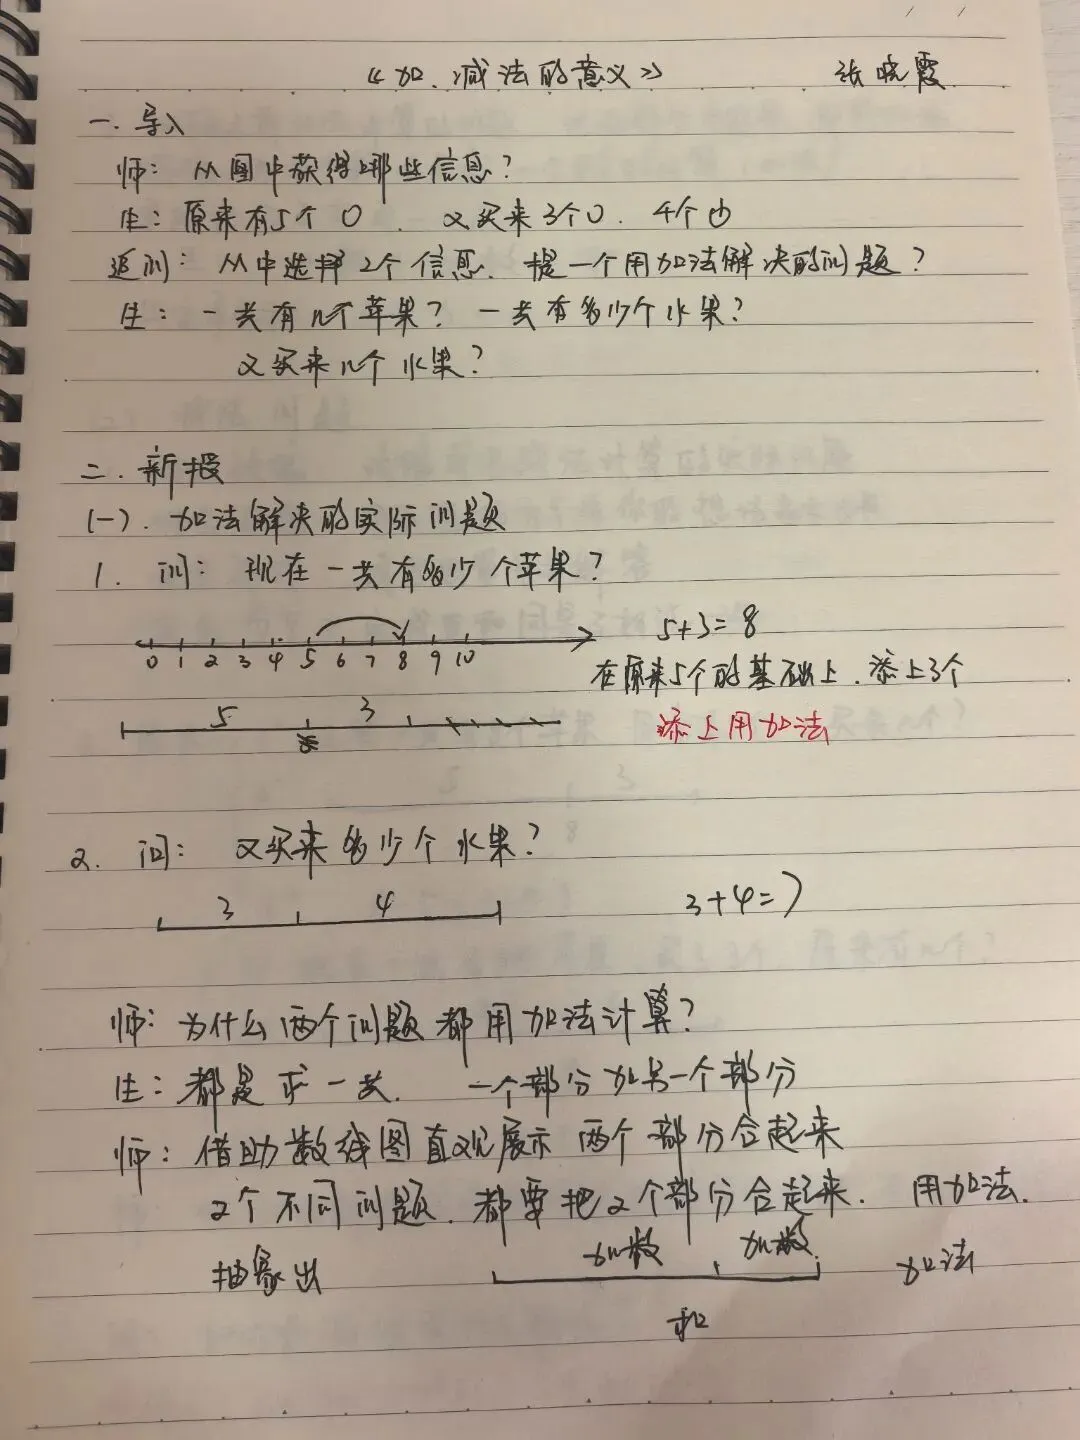 《加、减法的意义》 张晓霞
一. 导入
师: 从图中获得哪些信息?
生: 原来有5个 . 又买来3个 . 4个
追问: 从中选择2个信息. 提一个用加法解决的问题?
生: 一共有几个苹果? 一共有多少个水果?
又买来几个水果?
二. 新授
(一). 加法解决的实际问题
1. 问: 现在一共有多少个苹果?
5+3=8
0 1 2 3 4 5 6 7 8 9 10
在原来5个的基础上. 添上3个
5 3
添上用加法
2. 问: 又买来多少个水果?
3 4 3+4=7
师: 为什么两个问题都用加法计算?
生: 都是求一共. 一个部分加另一个部分
师: 借助数线图直观展示两个部分合起来
2个不同问题. 都要把2个部分合起来. 用加法.
抽象出 加数 加数 加法
和